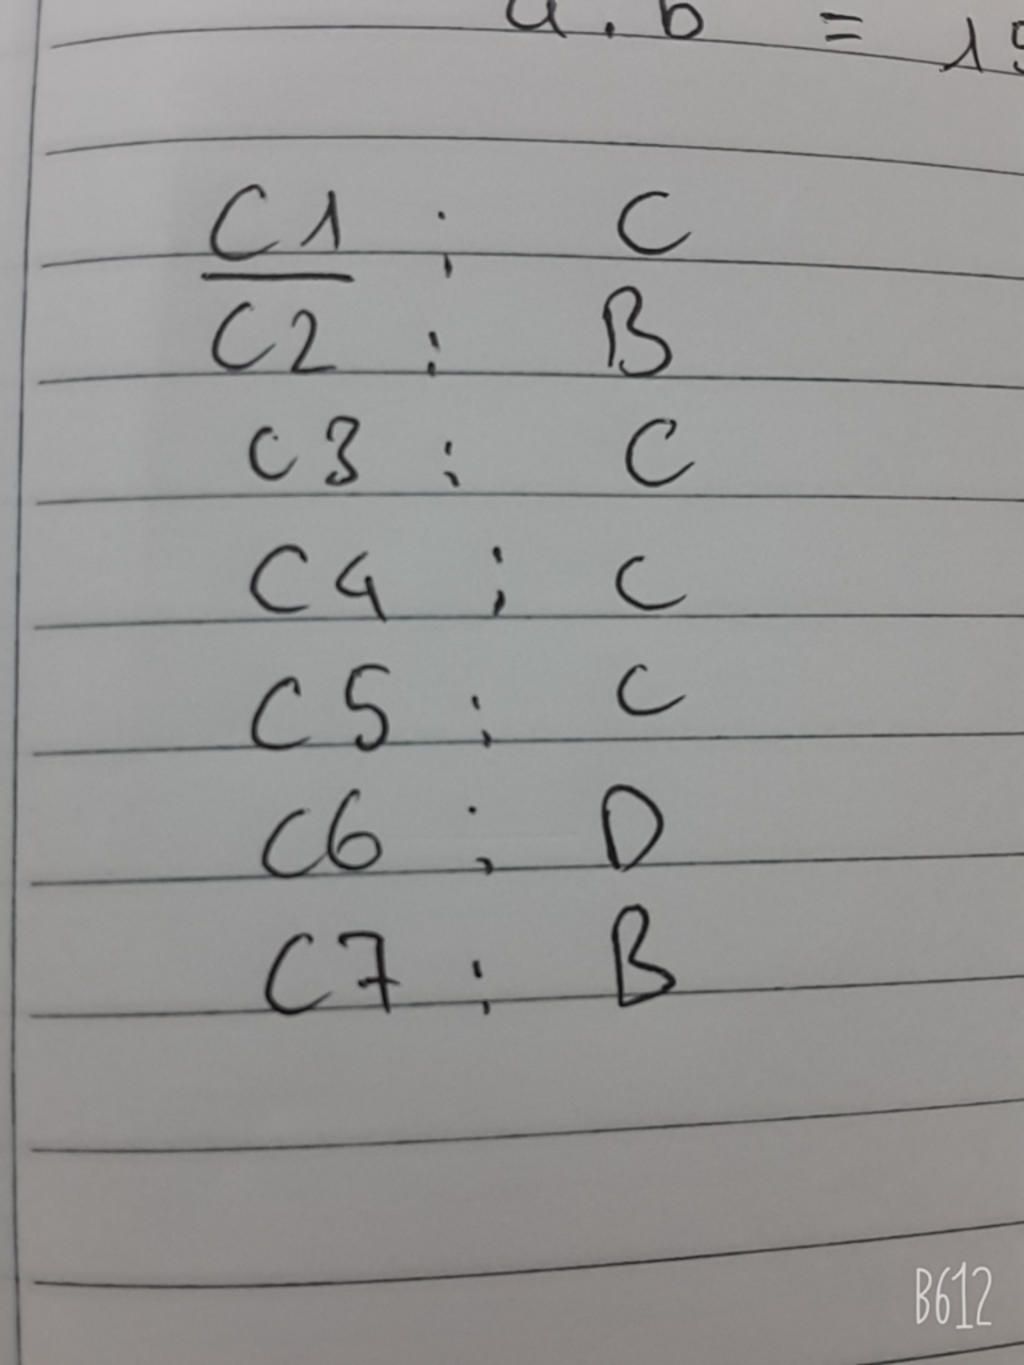 a.b = 15
C1 : C
C2 : B
C3 : C
C4 : C
C5 : C
C6 : D
C7 : B
B612